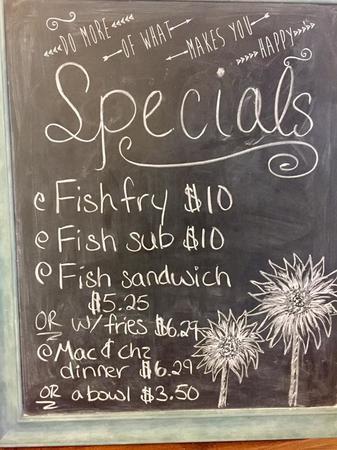 DO MORE
OF WHAT
MAKES YOU
HAPPY
Specials
Fish fry $10
Fish sub $10
Fish sandwich
$5.25
OR w/ fries $6.29
Mac & chz
dinner $6.29
OR a bowl $3.50